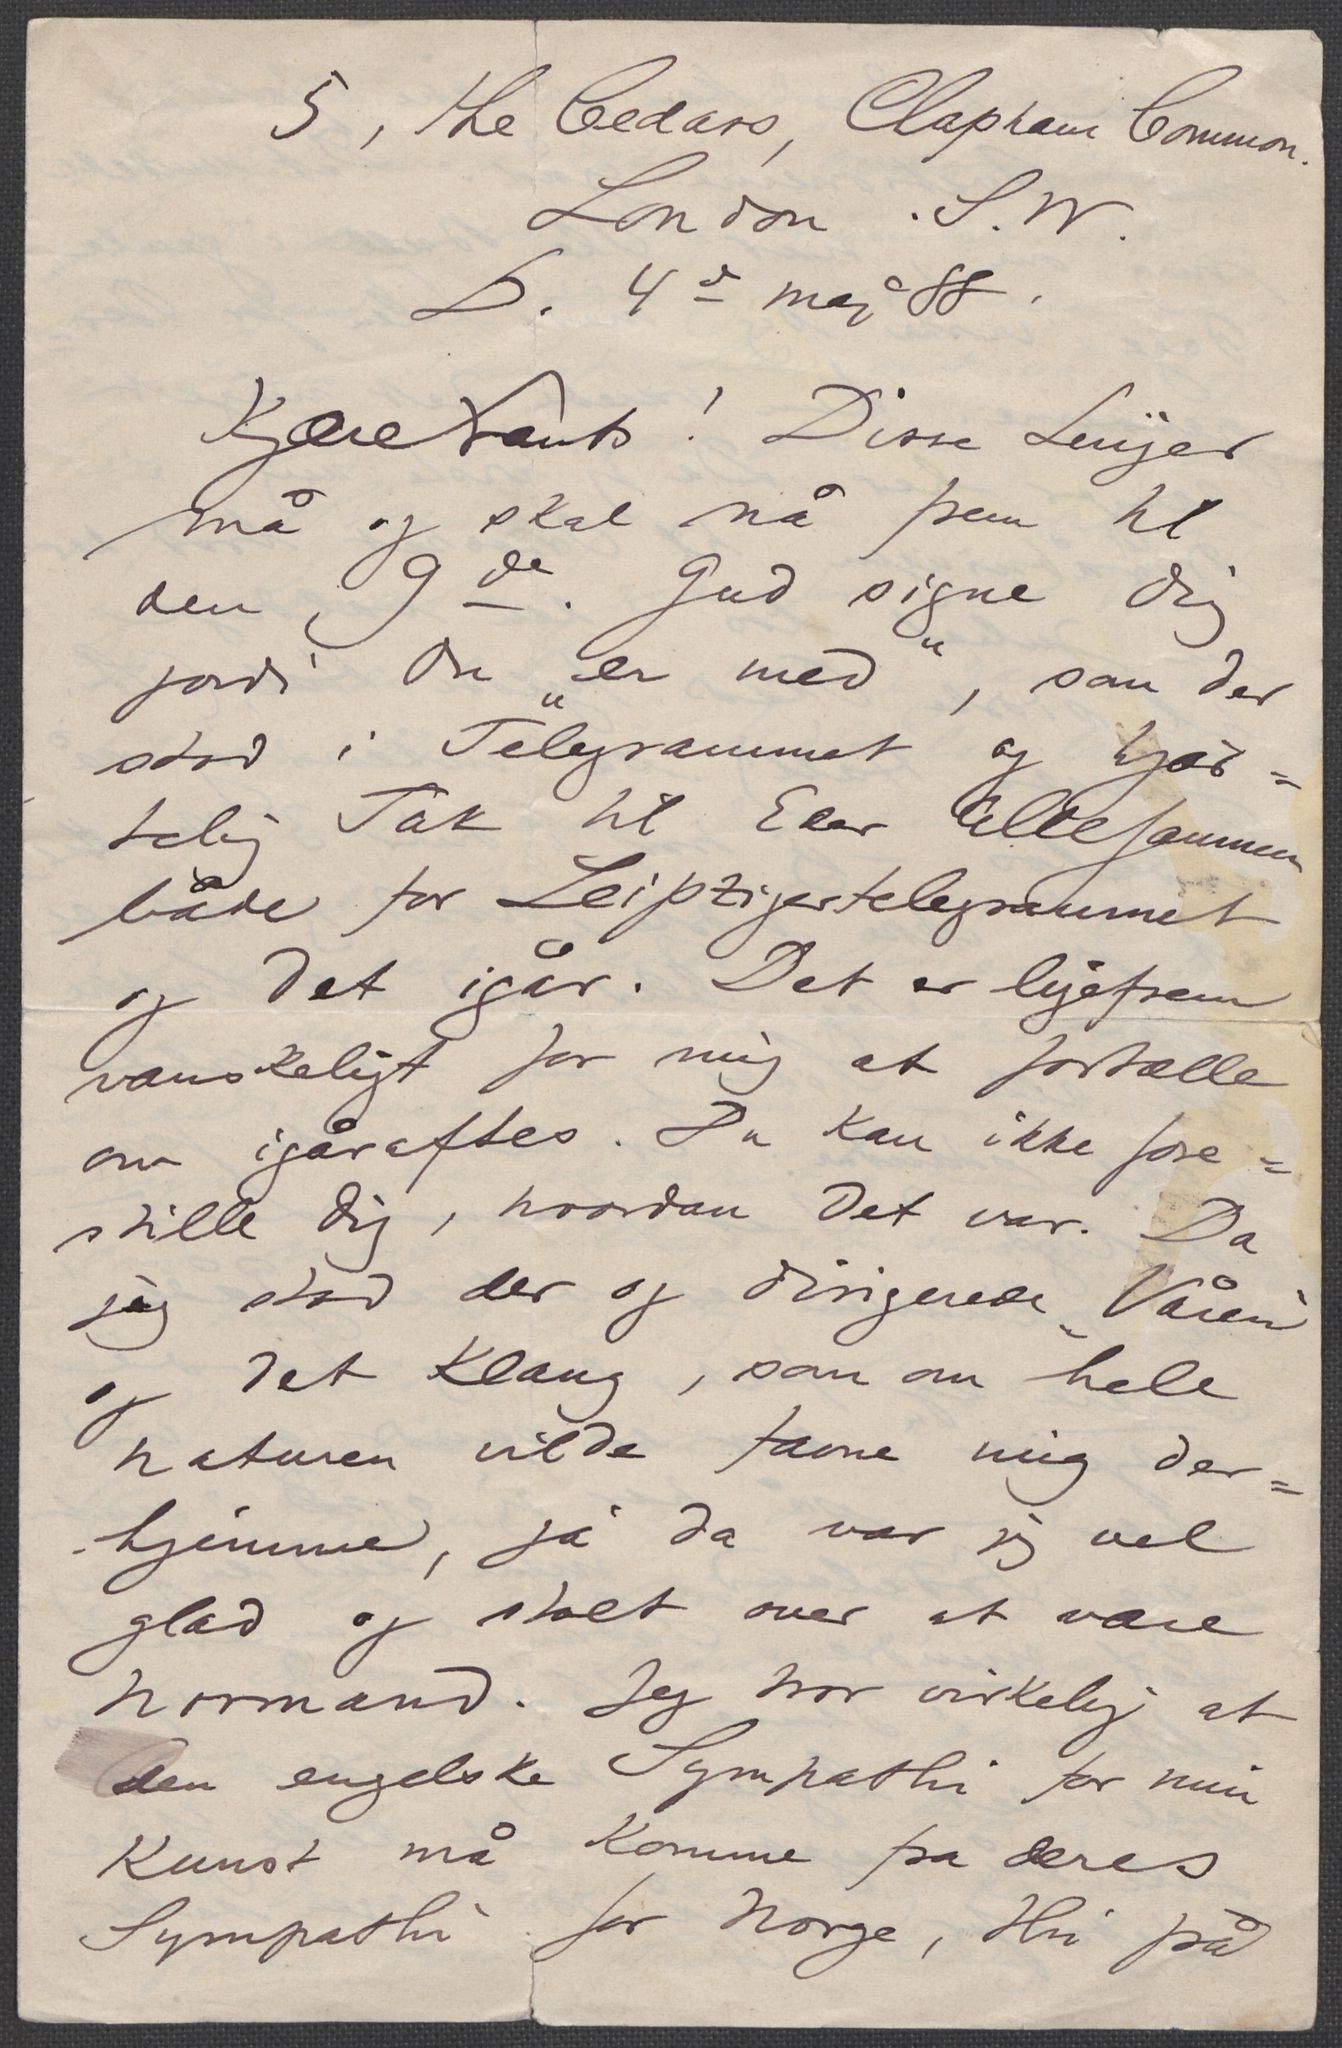 5, the Cedars, Clapham Common.
London. S. W.
D. 4d maj 88.
Kjære Frants! Disse Linjer
må og skal nå frem til
den 9de. Gud signe Dig
fordi Du „er med“, som der
stod i Telegrammet og hjær=
telig Tak til Eder Allesammen
både for Leipzigertelegrammet
og det igår. Det er ligefrem
vanskeligt for mig at fortælle
om igåraftes. Du kan ikke fore=
stille Dig, hvordan det var. Da
jeg stod der og dirigerede „Våren“
og det klang, som om hele
Naturen vilde favne mig der=
hjemme, ja da var jeg vel
glad og stolt over at være
Normand. Jeg tror virkelig at
den engelske Sympathi for min
Kunst må komme fra deres
Sympathi for Norge, thi på